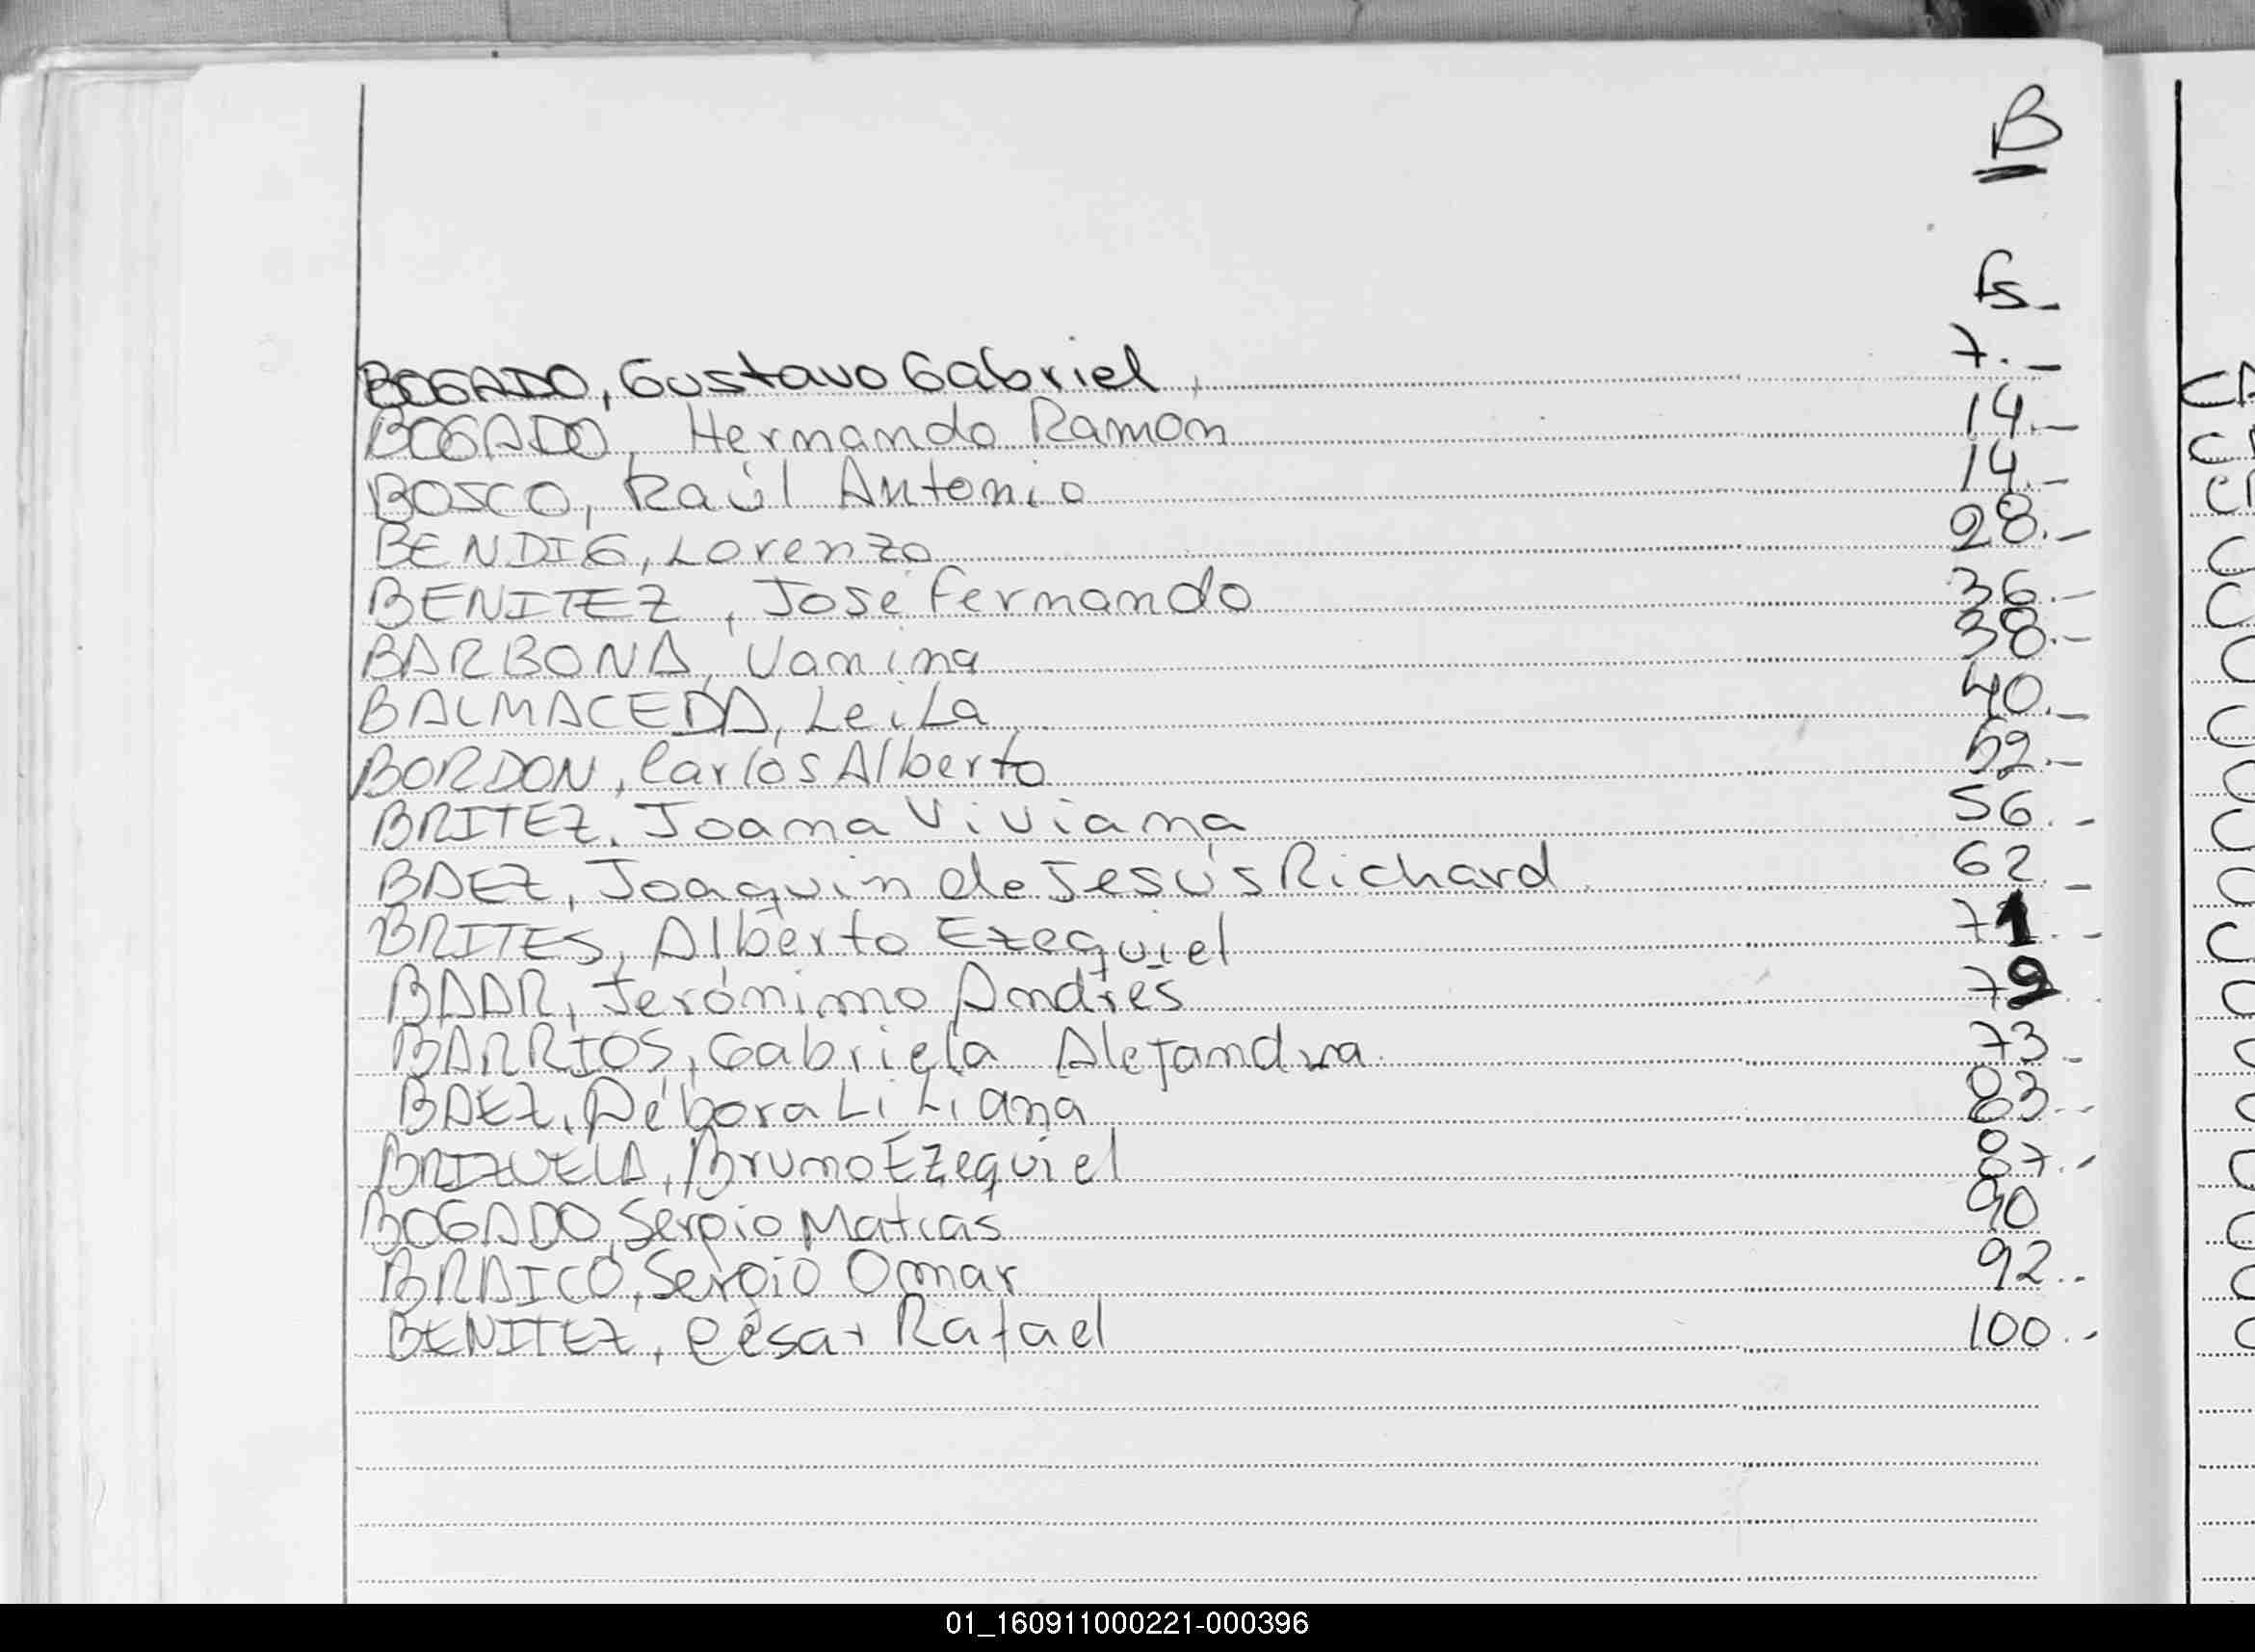 B
Fs_
BOGADO, Gustavo Gabriel, 7._
BOGADO, Hernando Ramon 14._
BOSCO, Raúl Antonio 14._
BENDIG, Lorenzo 28._
BENITEZ, José Fernando 36._
BARBONA, Vanina 38._
BALMACEDA, Leila 40._
BORDON, Carlos Alberto 52._
BRITEZ, Joana Viviana 56._
BAEZ, Joaquin de Jesús Richard 62._
BRITES, Alberto Ezequiel 71._
BAAR, Jerónimo Andrés 72
BARRIOS, Gabriela Alejandra. 73_
BAEZ, Débora Liliana 83._
BRIZUELA, Bruno Ezequiel 87._
BOGADO, Sergio Matias 90
BRAICO, Sergio Omar 92._
BENITEZ, César Rafael 100._
01_160911000221-000396